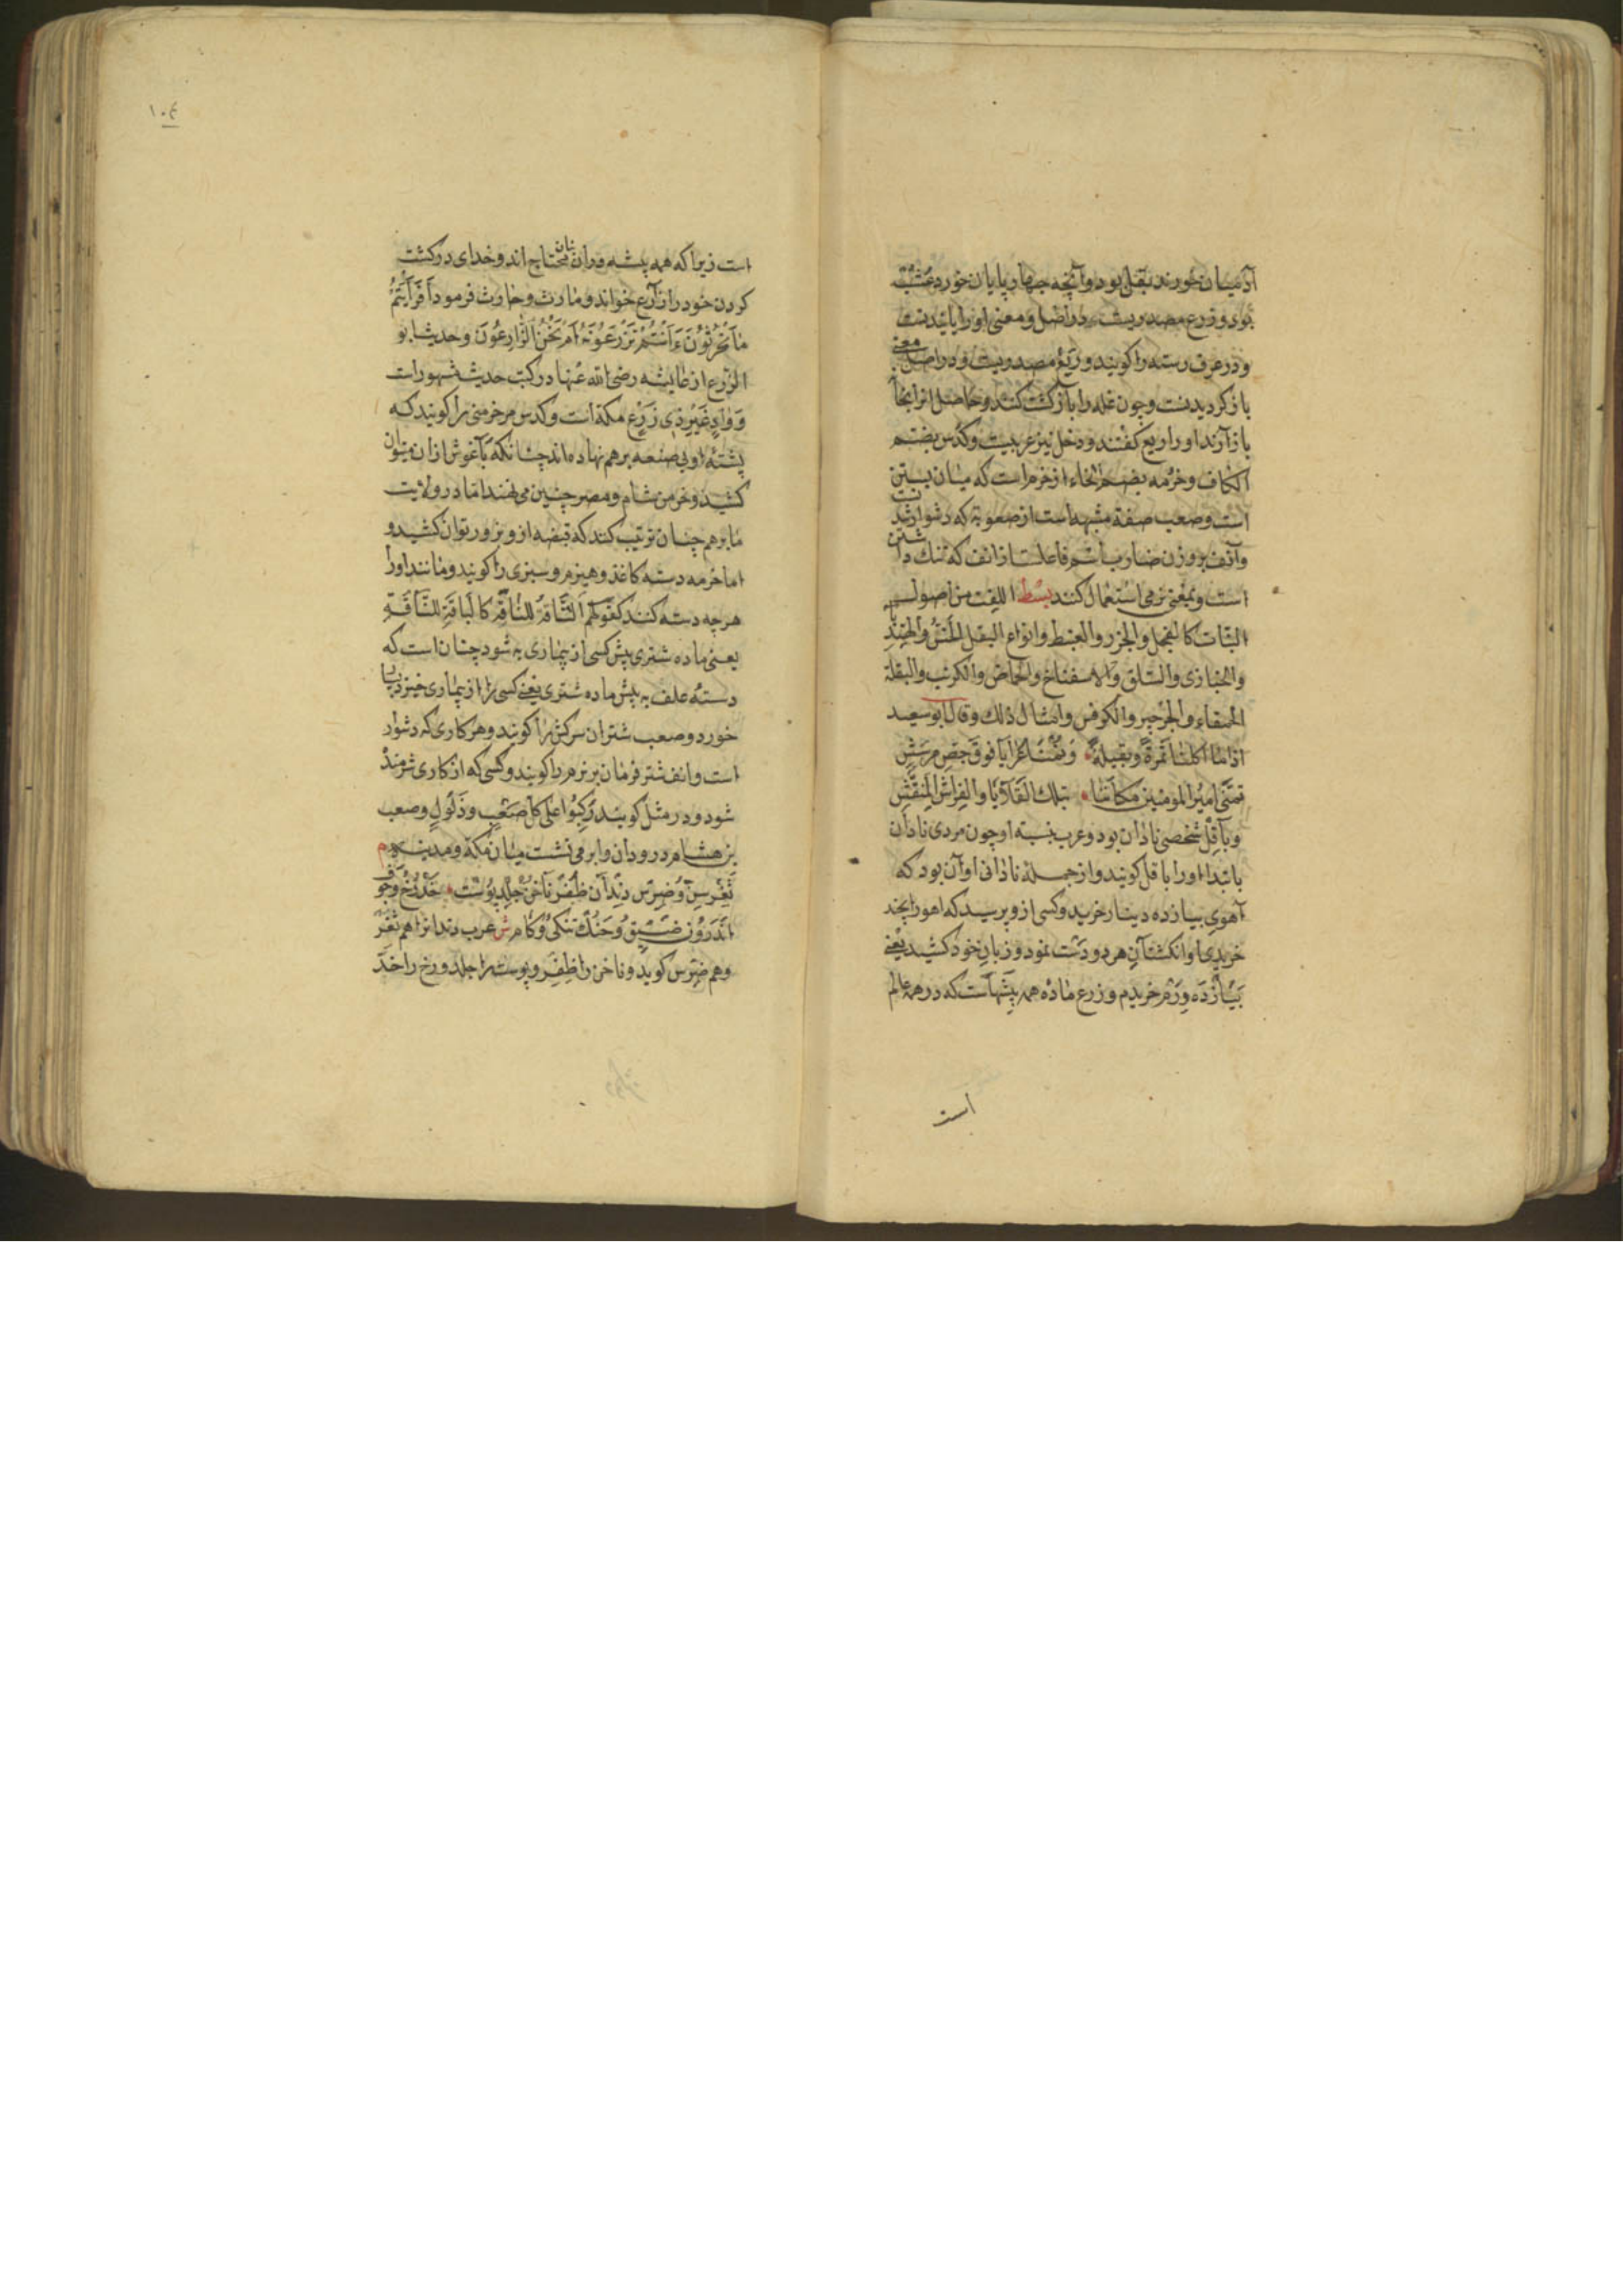 آدمیان خورند بقل بود و آنچه چهارپایان خورد عشب
بود و زرع مصدریست در اصل و معنی او رایانیدنست
و در عرف رسته را کویند و ریع مصدریست و در اصل بمعنی
باز کردیدنست و چون غله را باز کشت کنند و حاصل انرا بجا
باز آرند او را ریع کفتند و دخل نیز عربیست و کدس بضم
الکاف و حزمه بضم الحاء از حزم است که میان بستن
است و صعب صفة مشبهه است از صعوبة که دشوار شدنست
و آنف بر وزن ضارب اسم فاعلست از انف که ننک داشتن
است و بمعنی نرمی استعمال کنند بسط اللفت من اصول
النبات کالفجل والجزر والعنبط وانواع البقل الخس والهندبا
والخبازی والسلق والاسفناخ والحماض والکرنب والبقلة
الحمقاء والجرجیر والکرفس وامثال ذلک وقال ابوسعید
اذا ما اکلنا تمرة وبقیلة ونمنا عرایا فوق جص مرشش
تمنی امیر المومنین مکاننا بتلک القلایا والفراش المنقش
و باقل شخصی نادان بود و عرب بنسبة او چون مردی نادان
یابند او را باقل کویند و از جمله نادانی او آن بود که
آهوی بیازده دینار خرید و کسی از و پرسید که اهو را بچند
خریدی او انکشتان هر دو دست نمود و زبان خود کشید یعنی
بیازده درم خریدم و زرع ماده همه پیشهاست که در همه عالم
است
١٠٤
است زیرا که همه پیشه وران بنان محتاج اند و خدای در کشت
کردن خود را زارع خواند و ما را حارث فرمود أفرأیتم
ما تحرثون ءأنتم تزرعونه أم نحن الزارعون و حدیث ابو
الزرع از عایشه رضی الله عنها در کتب حدیث مشهور است
و واد غیر ذی زرع مکة است و کدس مر خرمنی را کویند که
پشته او بی صنعه برهم نهاده اند چنانکه بآغوش از ان میتوان
کشید و خرمن شام و مصر چنین می نهند اما در ولایت
ما برهم چنان ترتیب کنند که قبضه از و بزور توان کشید و
اما حزمه دسته کاغذ و هیزم و سبزی را کویند و مانند او را
هرچه دسته کنند کقولهم الناقة کالباقة للناقة
یعنی ماده شتری پیش کسی از بیماری به شود چنان است که
دسته علف به پیش ماده شتری یعنی کسی را از بیماری خیزد بسیار
خورد و صعب شتران سرکش را کویند و هر کاری که دشوار
است و انف شتر فرمان بر نرم را کویند و کسی که از کاری شرمنده
شود و در مثل کویند رکبوا علی کل صعب وذلول و صعب
بن هشام در ودان و ابو می نشست میان مکة و مدینه م
ثغر سن و ضرس دندان ظفر ناخن جلد پوست خد رخ و جوف
اندرون ضیق و حنک تنکی و کام ش عرب دندانرا هم ثغر
و هم ضرس کوید و ناخن را ظفر و پوست را جلد و رخ را خد